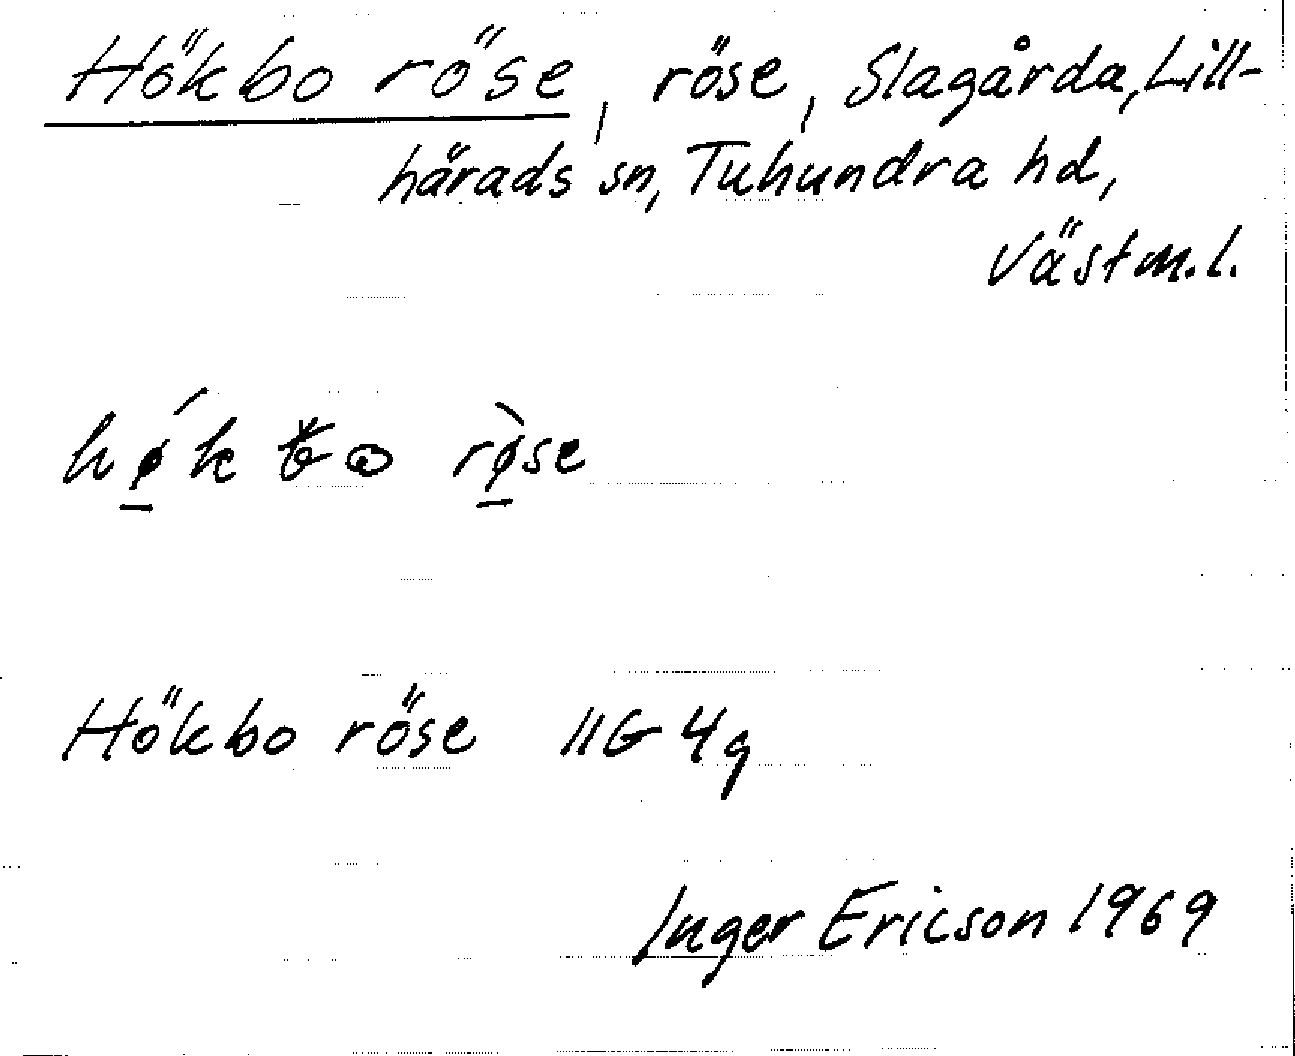 Hökbo röse, röse, Slagårda, Lill-
härads sn, Tuhundra hd,
Västm.l.
Hökbo röse 11G 4g
Inger Ericson 1969